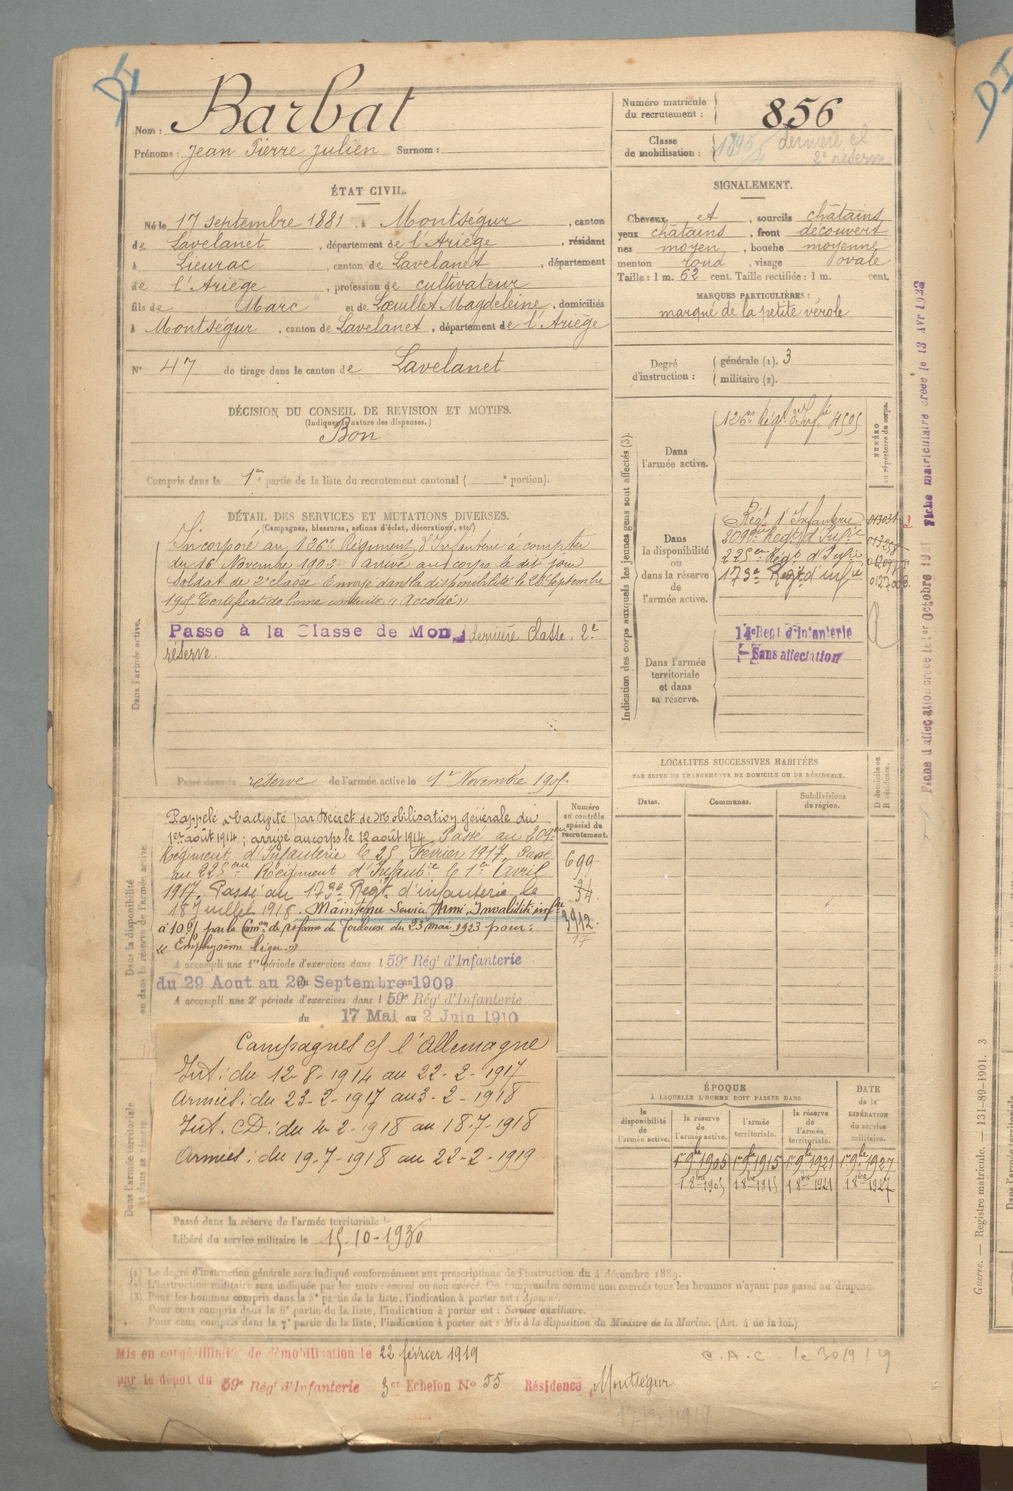 Nom : Barbat
Prénoms : Jean Pierre Julien Surnom :
ÉTAT CIVIL.
Né le 17 septembre 1881, à Montségur, canton
de Lavelanet, département de l'Ariège, résidant
à Lieurac, canton de Lavelanet, département
de l'Ariège, profession de cultivateur
fils de Marc et de Magdeleine, domiciliés
à Montségur, canton de Lavelanet, département de l'Ariège
N° 47 de tirage dans le canton de Lavelanet
DÉCISION DU CONSEIL DE REVISION ET MOTIFS.
(Indiquer la nature des dispenses.)
Bon
Compris dans la 1re partie de la liste du recrutement cantonal ( ° portion).
DÉTAIL DES SERVICES ET MUTATIONS DIVERSES.
(Campagnes, blessures, actions d'éclat, décorations, etc.)
Dans l'armée active.
Incorporé au 126e Régiment d'Infanterie à compter
du 16 Novembre arrivé au corps le dit jour
Soldat de 2e classe Envoyé dans la disponibilité le Septembre
Certificat de bonne conduite "Accordé"
Passé à la Classe de Mob dernière classe. 2e
réserve.
Passé dans la réserve de l'armée active le 1er Novembre
Dans la disponibilité ou dans la réserve de l'armée active
Rappelé à l'activité par Décret de Mobilisation générale du
1er août 1914 ; arrivé au corps le 12 août 1914 Passé au 209me
Régiment d'Infanterie le 25 Février 1917 Passé
au 225me Régiment d'Infanterie le 1er Avril
1917. Passé au 173e Regt d'infanterie le
18 Juillet 1918. Maintenu Service Armé, Invalidité infre
à 10% par la Comon de réforme de Toulouse du 23 mai 1923 pour :
"Emphysème léger"
Numéro au contrôle spécial du recrutement.
699
A accompli une 1re période d'exercices dans l 59e Rég' d'Infanterie
du 29 Aout au 20 Septembre 1909
A accompli une 2e période d'exercices dans l 59e Rég' d'Infanterie
du 17 Mai au 2 Juin 1910
Campagnes c/ l'Allemagne
Int : du 12-8-1914 au 22-2-1917
Armées : du 23-2-1917 au 3-2-1918
Int. CD : du 4-2-1918 au 18-7-1918
Armées : du 19-7-1918 au 22-2-1919
Dans l'armée territoriale et dans sa réserve.
Passé dans la réserve de l'armée territoriale le
Libéré du service militaire le 15-10-1930
Numéro matricule du recrutement : 856
Classe de mobilisation : dernière cl
2e réserve
SIGNALEMENT.
Cheveux et , sourcils châtains,
yeux châtains, front découvert
nez moyen, bouche moyenne
menton rond, visage ovale
Taille : 1 m. 62 cent. Taille rectifiée : 1 m. cent.
MARQUES PARTICULIÈRES :
marqué de la petite vérole
Degré d'instruction : générale (1). 3
militaire (2).
Indication des corps auxquels les jeunes gens sont affectés (3).
NUMÉRO au répertoire du corps.
Dans l'armée active.
126e Régt d'Infie
Dans la disponibilité ou dans la réserve de l'armée active.
Régt d'Infanterie
209me Regt d'Infie
225me Regt d'Infie
173e Regt d'infie
Dans l'armée territoriale et dans sa réserve.
14e Regt d'Infanterie
Sans affectation
LOCALITÉS SUCCESSIVES HABITÉES
PAR SUITE DE CHANGEMENTS DE DOMICILE OU DE RÉSIDENCE.
Dates. Communes. Subdivisions de région. D domicile ou R résidence.
ÉPOQUE
À LAQUELLE L'HOMME DOIT PASSER DANS
DATE de la LIBÉRATION du service militaire.
la disponibilité de l'armée active. la réserve de l'armée active. l'armée territoriale. la réserve de l'armée territoriale.
1er 9bre 1905 1er 9bre 1915 1er 9bre 1921 1er 9bre 1927
1 8bre 1905 1 8bre 1915 1 8bre 1921 1 8bre 1927
(1) Le degré d'instruction générale sera indiqué conformément aux prescriptions de l'instruction du 4 décembre 1889.
(2) L'instruction militaire sera indiquée par les mots : exercé ou non exercé. On comprendra comme non exercés tous les hommes n'ayant pas passé au drapeau.
(3) Pour les hommes compris dans la 5e partie de la liste, l'indication à porter est : Ajourné.
Pour ceux compris dans la 6e partie de la liste, l'indication à porter est : Service auxiliaire.
Pour ceux compris dans la 7e partie de la liste, l'indication à porter est : Mis à la disposition du Ministre de la Marine. (Art. 4 de la loi.)
Mis en congé illimité de démobilisation le 22 février 1919
par le dépôt du 59e Rég' d'Infanterie 3e Echelon N° 55 Résidence Montségur
C.A.C le 30/9/29
Fiche d'affectation créée le 1er Octobre 1921 Fiche matriculaire créée le 13 AVR
Guerre. — Registre matricule. — 131-89-1901. 3